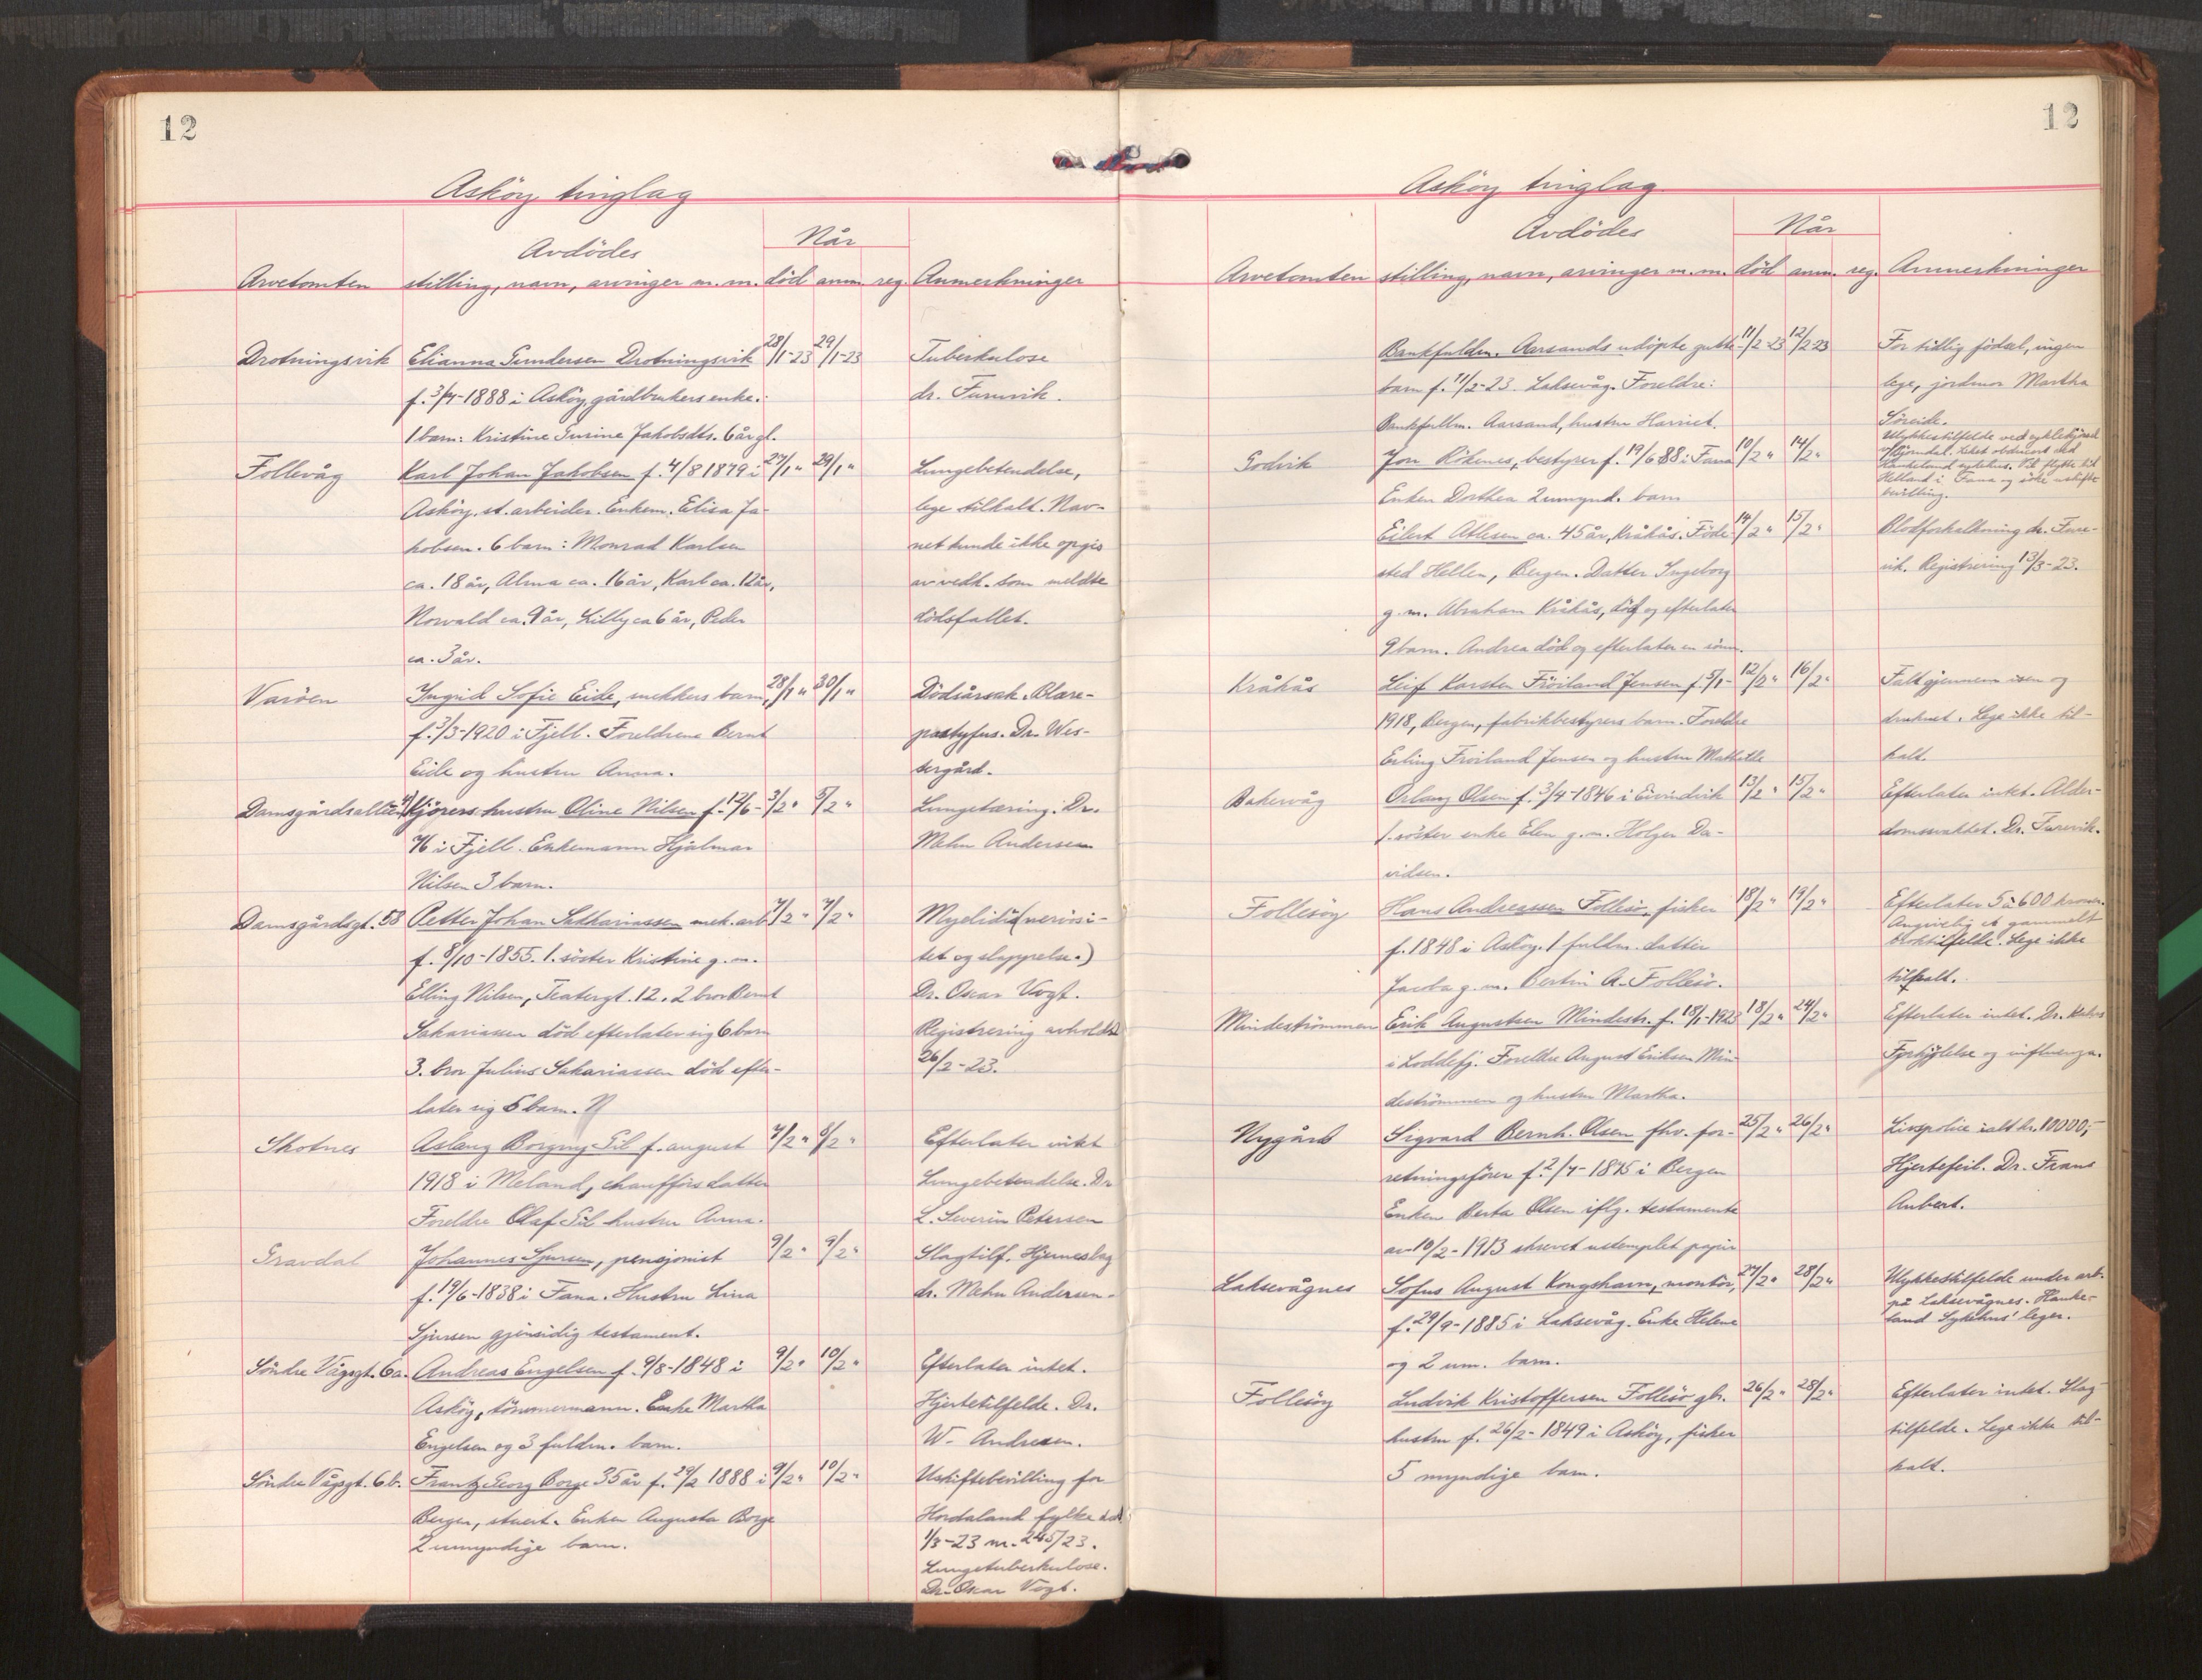 12
Asköy tinglag
Avdödes
Når
Arvetomten stilling, navn, arvinger m. m. död anm. reg. Anmerkninger
Drotningsvik Elianna Gundersen Drotningsvik 28/1-23 29/1-23 Tuberkulose
f. 3/4-1888 i Asköy, gårdbrukers enke. dr. Furuvik.
1 barn: Kristine Gurine Jakobsdtr. 6 år gl.
Follevåg Karl Johan Jakobsen f. 4/8 1879 i 27/1 " 29/1 " Lungebetendelse,
Asköy. st. arbeider. Enkem. Elisa Ja- lege tilkalt. Nav-
kobsen. 6 barn: Monrad Karlsen net kunde ikke opgis
ca. 18 år, Alma ca. 16 år, Karl ca. 12 år, av vedk. som meldte
Norvald ca. 9 år, Lilly ca 6 år, Peder dödsfallet.
ca. 3 år.
Varöen Ingrid Sofie Eide, snekkers barn, 28/1 " 30/1 " Dödsårsak. Blære-
f. 3/3-1920 i Fjell. Foreldrene Bernt Dr. Wes-
Eide og hustru Anna. tergård.
Damsgårdsalléen Kjörers hustru Oline Nilsen f. 12/6- 3/2 " 5/2 " Lungetæring. Dr.
76 i Fjell. Enkemann Hjalmar Mehn Andersen
Nilsen 3 barn.
Damsgårdsgt. 58 Petter Johan Sakkariassen mek. arb. 7/2 " 7/2 " (nervösi-
f. 8/10-1855. 1. söster Kristine g. m. tet og slappelse.)
Elling Nilsen, Teatergt. 12. 2 bror Bernt Dr. Oscar Vogt.
Sakariassen död efterlater sig 6 barn Registrering avholdt
3. bror Julius Sakariassen död efter- 26/2-23.
later sig 5 barn.
Skotnes Aslaug Borgny Sil f. august 7/2 " 8/2 " Efterlater intet
1918 i Meland, chaufförs datter Lungebetendelse. Dr
Foreldre Olaf Sil hustru Anna. L. Severin Petersen
Gravdal Johannes Sjursen, pensjonist 9/2 " 9/2 " Slagtilf. Hjerneslag
f. 19/6-1838 i Fana. Hustru Lina dr. Mehn Andersen.
Sjursen gjensidig testament.
Söndre Vågsgt. 6a. Andreas Engelsen f. 9/8-1848 i 9/2 " 10/2 " Efterlater intet.
Asköy, tömmermann. Enke Martha Hjertetilfelde. Dr.
Engelsen og 3 fuldm. barn. W. Andresen.
Söndre Vågsgt. 6 b. Frantz Georg Borge 35 år f. 29/2 1888 i 9/2 " 10/2 " Uskiftebevilling for
Bergen, stuert. Enken Augusta Borge Hordaland fylke dat.
2 umyndige barn. 1/3-23 nr. 245/23.
Lungetuberkulose.
Dr. Oscar Vogt.
12
Asköy tinglag
Avdödes
Når
Arvetomten stilling, navn, arvinger m. m. död anm. reg. Anmerkninger
Bankfuldm. Aarsands udöpte gutte- 11/2-23 12/2-23 For tidlig födsel, ingen
barn f. 11/2-23. Laksevåg. Foreldre: lege, jordmor Martha
Bankfullm. Aarsand, hustru Harriet. Söreide.
Godvik Jon Rökenes, bestyrer f. 19/6 88 i Fana 10/2 " 14/2 " Ulykkestilfelde ved
Enken Dorthea 2 umynd. barn Haukeland sykehus. Vil flytte til
Helland i Fana og söke uskifte-
bevilling.
Eilert Atlesen ca. 45 år, Kråkås. Föde- 14/2 " 15/2 " Blodforkalkning dr. Fure-
sted Hellen, Bergen. Datter Ingeborg vik. Registrering 13/3-23.
g. m. Abraham Kråkås, död og efterlater
9 barn. Andrea död og efterlater en sönn.
Kråkås Leif Karsten Fröiland Jensen f. 5/1- 12/2 " 16/2 " Falt gjennem isen og
1918, Bergen, fabrikbestyrers barn. Foreldre druknet. Lege ikke til-
Erling Fröiland Jensen og hustru Mathilde kalt.
Bakervåg Olsen f. 3/4-1846 i Eivindvik 13/2 " 15/2 " Efterlater intet. Alder-
1. söster enke Elen g. m. Holger Da- domssvakhet. Dr. Furevik.
vidsen.
Follesöy Hans Andreassen Follesö, fisker 18/2 " 19/2 " Efterlater 5 à 600 kroner.
f. 1848 i Asköy. 1 fuldm. datter Angivelig et gammelt
broktilfelde. Lege ikke
Jacoba g. m. Bertin A. Follesö. tilkalt.
Mindeströmmen Erik Augustsen Mindestr. f. 18/1-1923 18/2 " 24/2 " Efterlater intet. Dr.
i Loddefj. Foreldre August Eriksen Min- Forkjölelse og influenza.
deströmmen og hustru Martha.
Nygård Sigvard Bernh. Olsen fhv. for- 25/2 " 26/2 " Livspolice ialt kr. 10000,-
retningsförer f. 2/7-1875 i Bergen Hjertefeil. Dr. Frans
Enken Berta Olsen iflg. testamente Aubert.
av 10/2-1913 skrevet ustemplet papir
Laksevågnes Sofus August Kongshavn, montör, 27/2 " 28/2 " Ulykkestilfelde under arb.
på Laksevågnes. Hauke-
f. 29/9-1885 i Laksevåg. Enke Helene land Sykehus' leger.
og 2 um. barn.
Follesöy Ludvik Kristoffersen Follesö gbr. 26/2 " 28/2 " Efterlater intet. Slag-
hustru f. 26/2-1849 i Asköy, fisker tilfelde. Lege ikke til-
5 myndige barn. kalt.